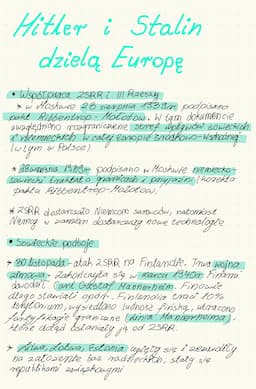 Hitler i Stalin
dzielą Europę
• Współpraca ZSRR i III Rzeszy
* w Moskwie 23 sierpnia 1939r. podpisano
pakt Ribbentrop-Mołotow. W tym dokumencie
uwzględniono rozgraniczenie stref wpływów sowieckich
i niemieckich w całej Europie Środkowo-Wschodniej
(w tym w Polsce)
* 28 września 1939r. podpisano w Moskwie niemiecko-
sowiecki traktat o granicach i przyjaźni (korekta
paktu Ribbentrop-Mołotow.
* ZSRR dostarczało Niemcom surowców, natomiast
Niemcy w zamian dostarczały nowe technologie
• Sowieckie podboje
* 30 listopada - atak ZSRR na Finlandię. Trwa wojna
zimowa. Zakończyła się w marcu 1940r. Finami
dowodził Carl Gustaf Mannerheim. Finowie
długo stawiali opór. Finlandia traci 10%
terytorium, wysiedlono ludność fińską, utracono
fortyfikacje graniczne (linia Mannerheima),
które odtąd ostaniały ją od ZSRR.
* Litwa, Łotwa, Estonia
na założenie baz radzieckich, stały się
republikami związkowymi